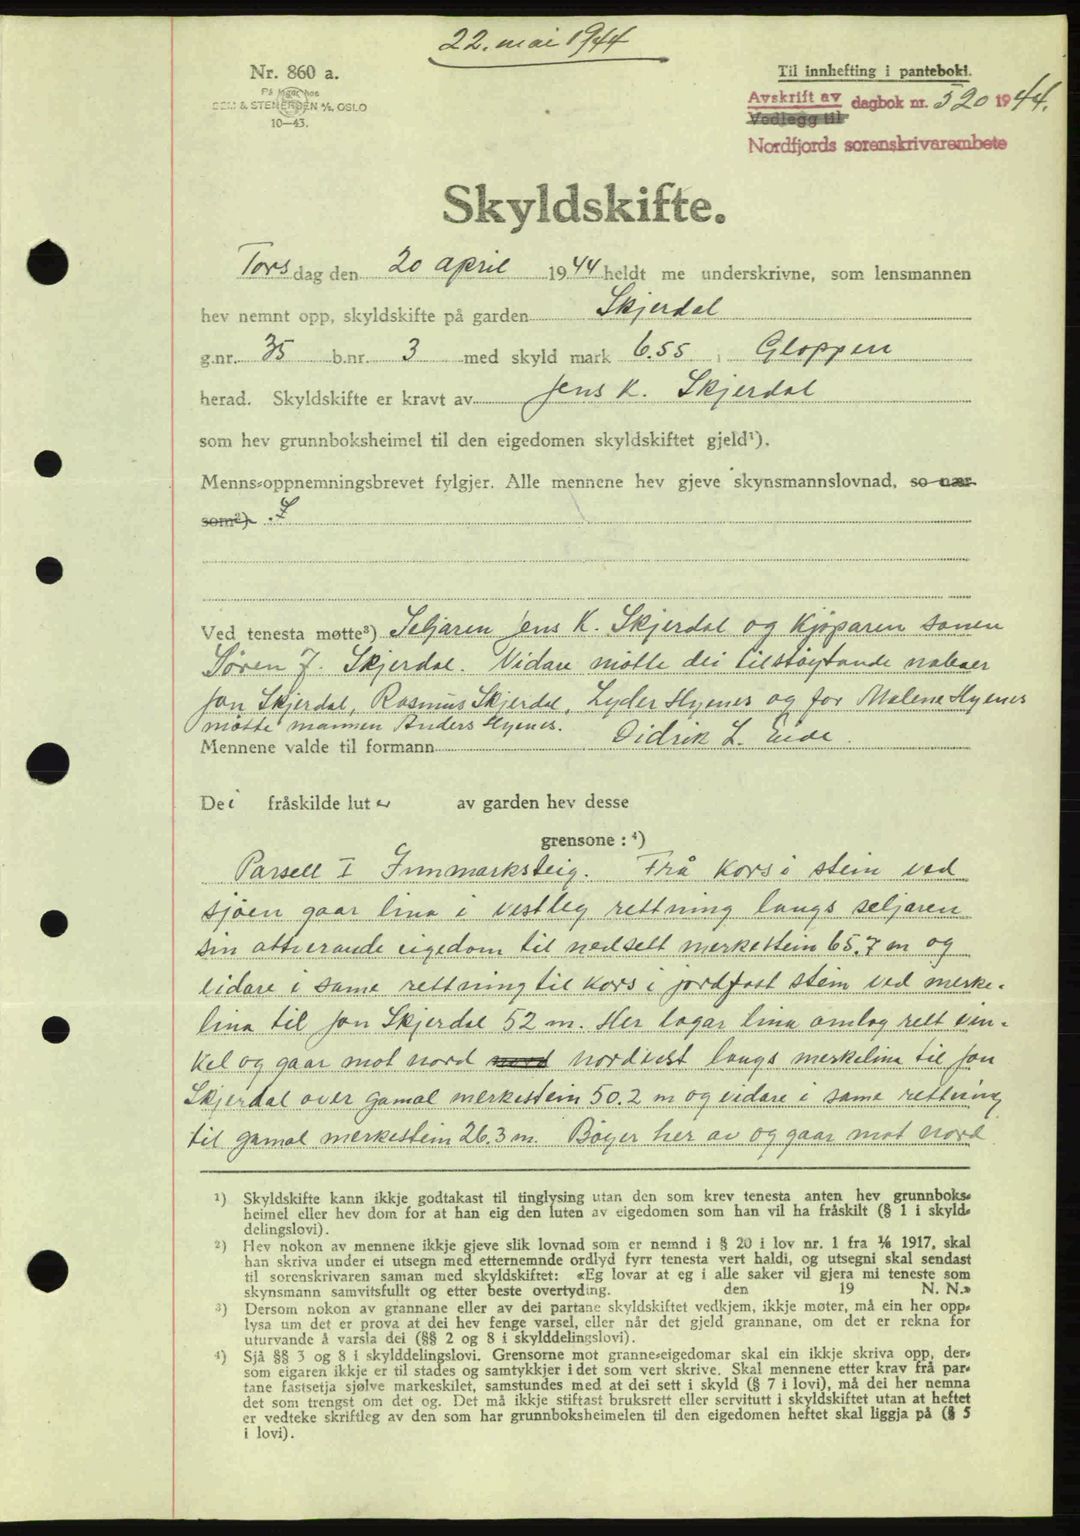 22. mai 1944
Nr. 860 a.
På lager hos
SEM & STENERSEN A/S, OSLO
10—43.
Til innhefting i panteboki.
Avskrift av dagbok nr. 520 1944.
Vedlegg til
Nordfjords sorenskrivarembete
Skyldskifte.
Tors dag den 20 april 1944 heldt me underskrivne, som lensmannen
hev nemnt opp, skyldskifte på garden Skjerdal
g.nr. 35 b.nr. 3 med skyld mark 6.55 i Gloppen
herad. Skyldskifte er kravt av Jens K. Skjerdal
som hev grunnboksheimel til den eigedomen skyldskiftet gjeld¹).
Menns-oppnemningsbrevet fylgjer. Alle mennene hev gjeve skynsmannslovnad, so nær
som²).
Ved tenesta møtte³) Seljaren Jens K. Skjerdal og Kjøparen sonen
Søren J. Skjerdal. Vidare møtte dei tilstøytande naboer
Jon Skjerdal, Rasmus Skjerdal, Lyder Hyenes og for Malene Hyenes
møtte mannen Anders Hyenes.
Mennene valde til formann Didrik L. Eide.
Dei fråskilde luter av garden hev desse
grensone : ⁴)
Parsell I Innmarksteig. Frå kors i stein ved
sjøen gaar lina i vestleg rettning langs seljaren
sin attverande eigedom til nedsett merkestein 65.7 m og
vidare i same rettning til kors i jordfast stein ved merke-
lina til Jon Skjerdal 52 m. Her lagar lina omlag rett vin-
kel og gaar mot nord nord nordvest langs merkelina til Jon
Skjerdal over gamal merkestein 50.2 m og vidare i same rettning
til gamal merkestein 26.3 m. Bøyer her av og gaar mot nord
¹) Skyldskifte kann ikkje godtakast til tinglysing utan den som krev tenesta anten hev grunnboks-
heimel eller hev dom for at han eig den luten av eigedomen som han vil ha fråskilt (§ 1 i skyld-
delingslovi).
²) Hev nokon av mennene ikkje gjeve slik lovnad som er nemnd i § 20 i lov nr. 1 fra 1/6 1917, skal
han skriva under ei utsegn med etternemnde ordlyd fyrr tenesta vert haldi, og utsegni skal sendast
til sorenskrivaren saman med skyldskiftet: «Eg lovar at eg i alle saker vil gjera mi teneste som
skynsmann samvitsfullt og etter beste overtyding. den 19 N. N.»
³) Dersom nokon av grannane eller av dei partane skyldskiftet vedkjem, ikkje møter, må ein her opp-
lysa um det er prova at dei hev fenge varsel, eller når det gjeld grannane, om det er rekna for
uturvande å varsla dei (§§ 2 og 8 i skylddelingslovi).
⁴) Sjå §§ 3 og 8 i skylddelingslovi. Grensorne mot granne-eigedomar skal ein ikkje skriva opp, der-
som eigaren ikkje er til stades og samtykkjer i det som vert skrive. Skal mennene etter krav frå par-
tane fastsetja sjølve markeskilet, samstundes med at dei sett i skyld (§ 7 i lovi), må dei her nemna
det som trengst om det og. Det må ikkje stiftast bruksrett eller servitutt i skyldskiftet utan at heftet
er vedteke skriftleg av den som har grunnboksheimelen til den eigedomen heftet skal liggja på (§ 5
i lovi).